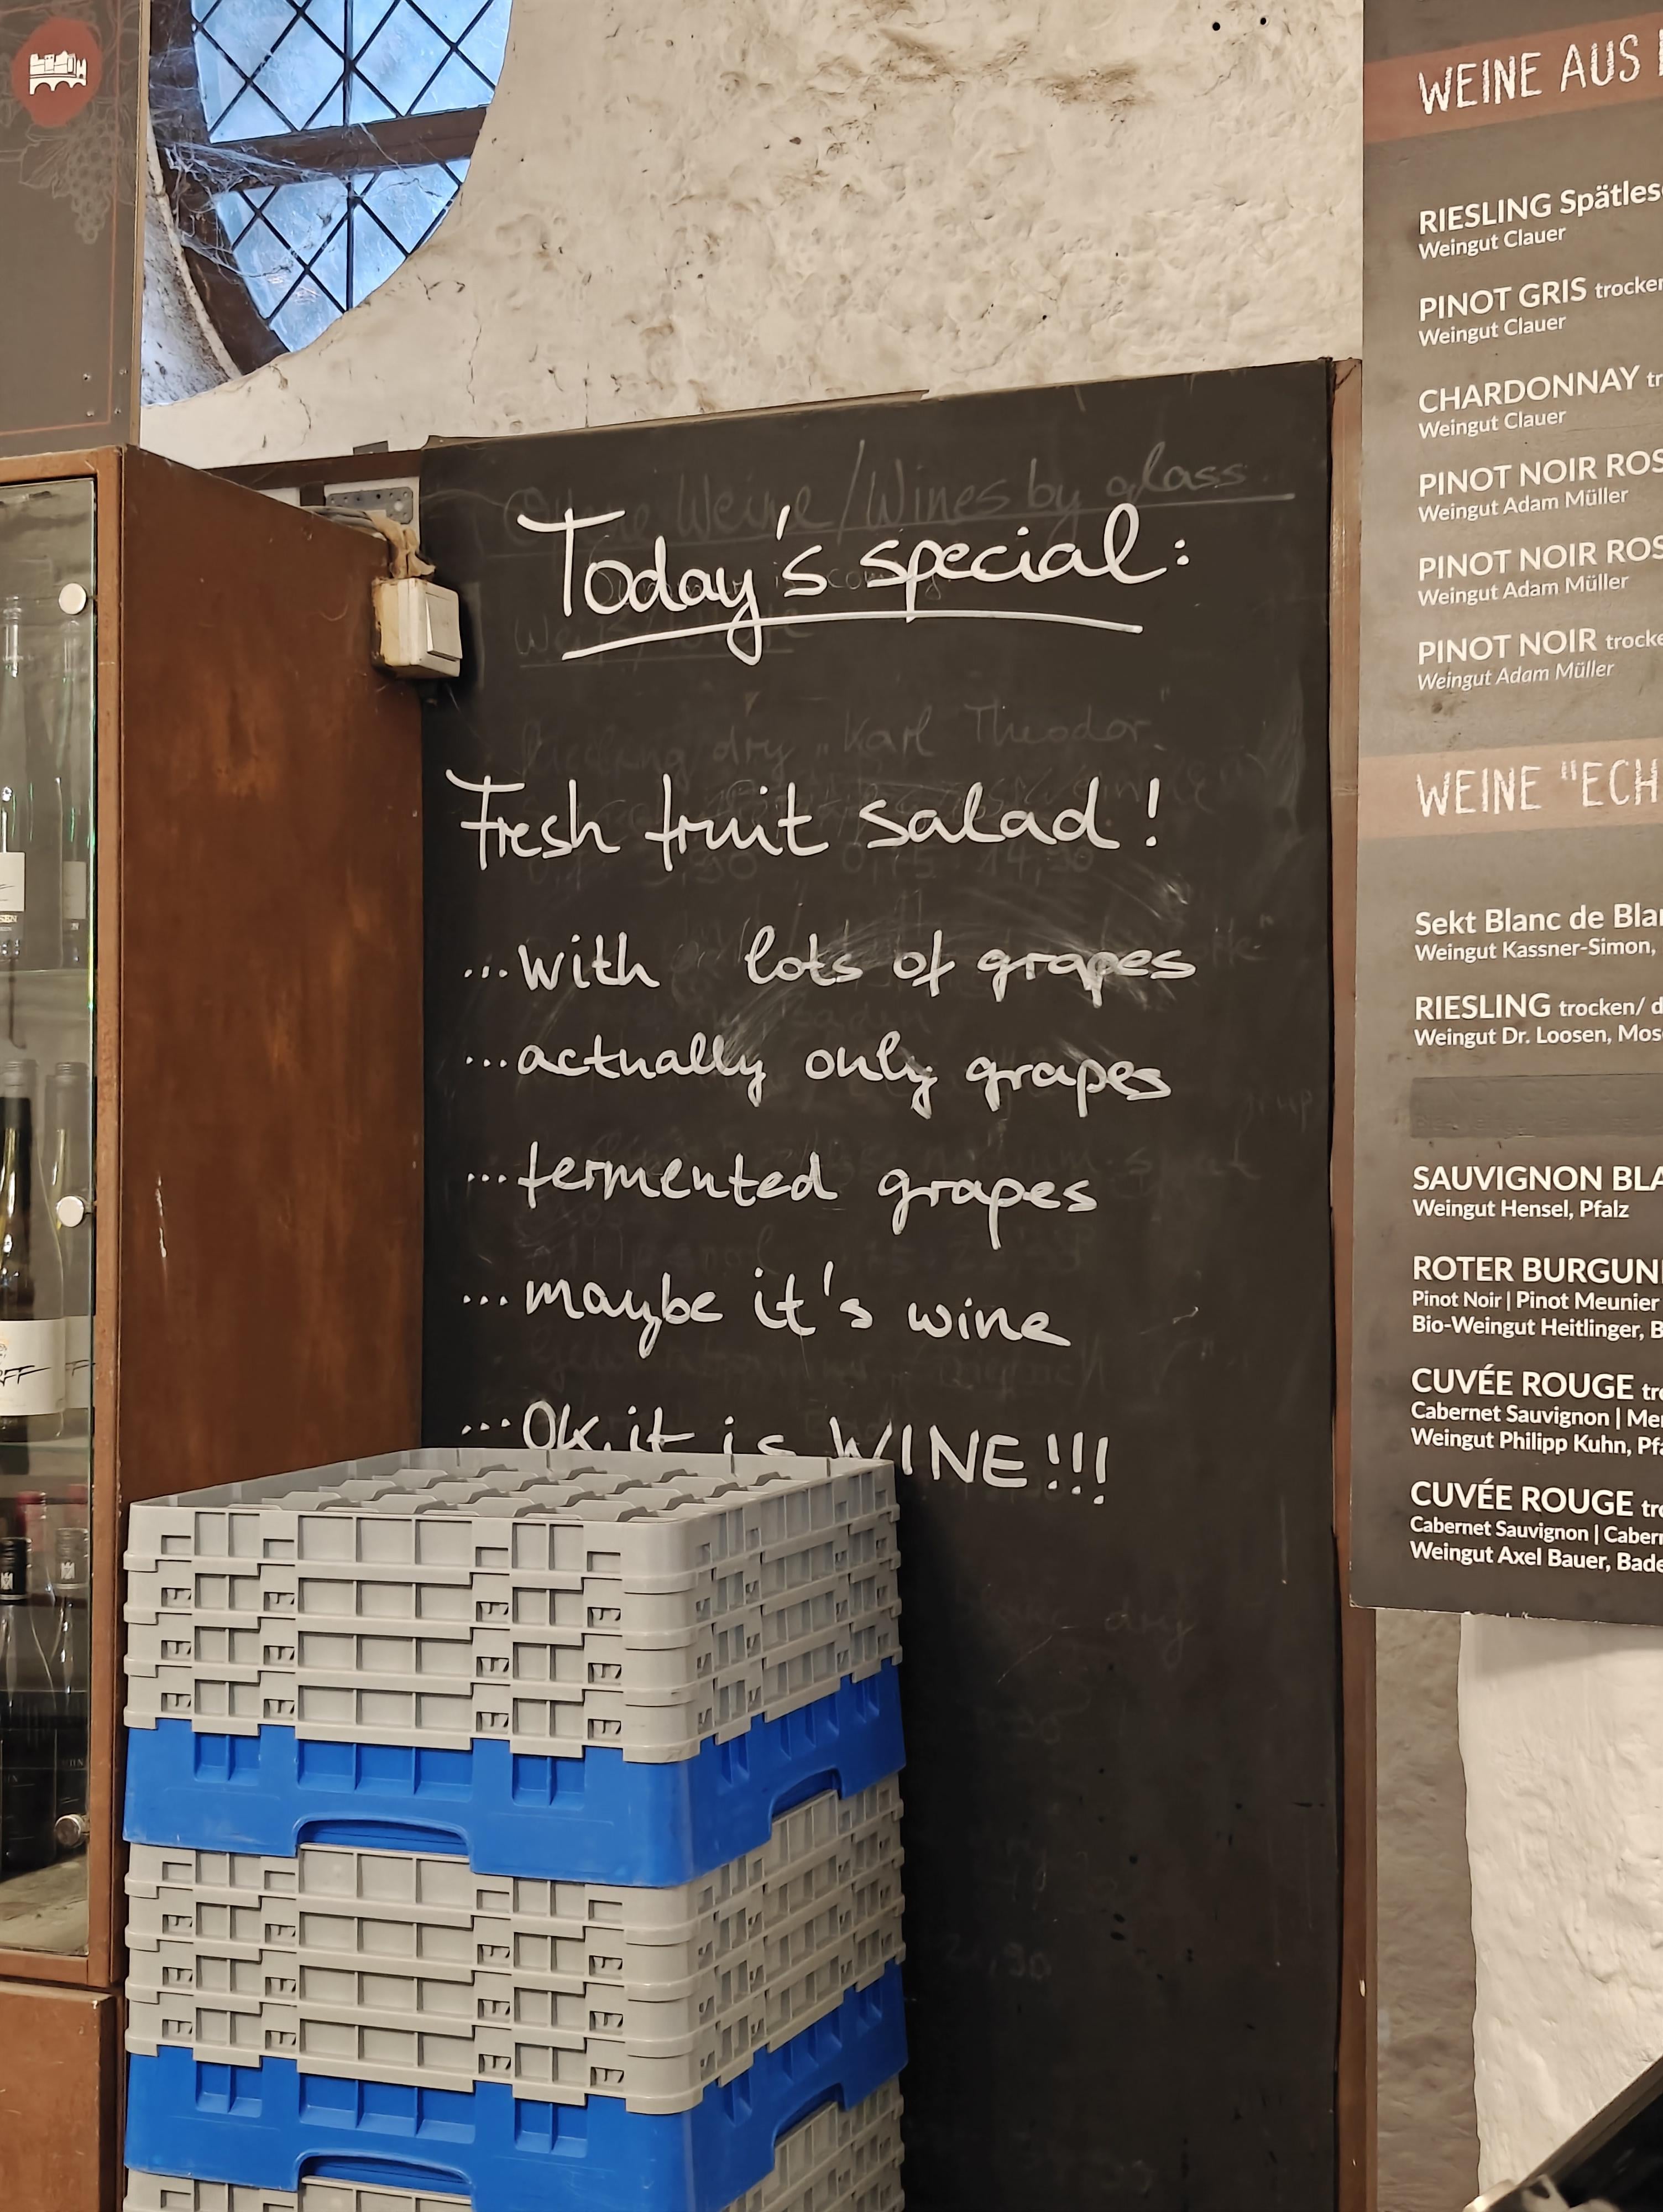 Today's special:
Fresh fruit salad!
...with lots of grapes
...actually only grapes
...fermented grapes
...maybe it's wine
...OK, it is WINE!!!
Weine/Wines by glass
dry "Karl Theodor"
dry
WEINE AUS
RIESLING Spätles
Weingut Clauer
PINOT GRIS trocken
Weingut Clauer
CHARDONNAY tr
Weingut Clauer
PINOT NOIR ROS
Weingut Adam Müller
PINOT NOIR ROS
Weingut Adam Müller
PINOT NOIR trocke
Weingut Adam Müller
WEINE "ECH
Sekt Blanc de Blan
Weingut Kassner-Simon,
RIESLING trocken/ d
Weingut Dr. Loosen, Mos
SAUVIGNON BLA
Weingut Hensel, Pfalz
ROTER BURGUN
Pinot Noir | Pinot Meunier
Bio-Weingut Heitlinger, B
CUVÉE ROUGE tro
Cabernet Sauvignon | Mer
Weingut Philipp Kuhn, Pfa
CUVÉE ROUGE tro
Cabernet Sauvignon | Cabern
Weingut Axel Bauer, Bade